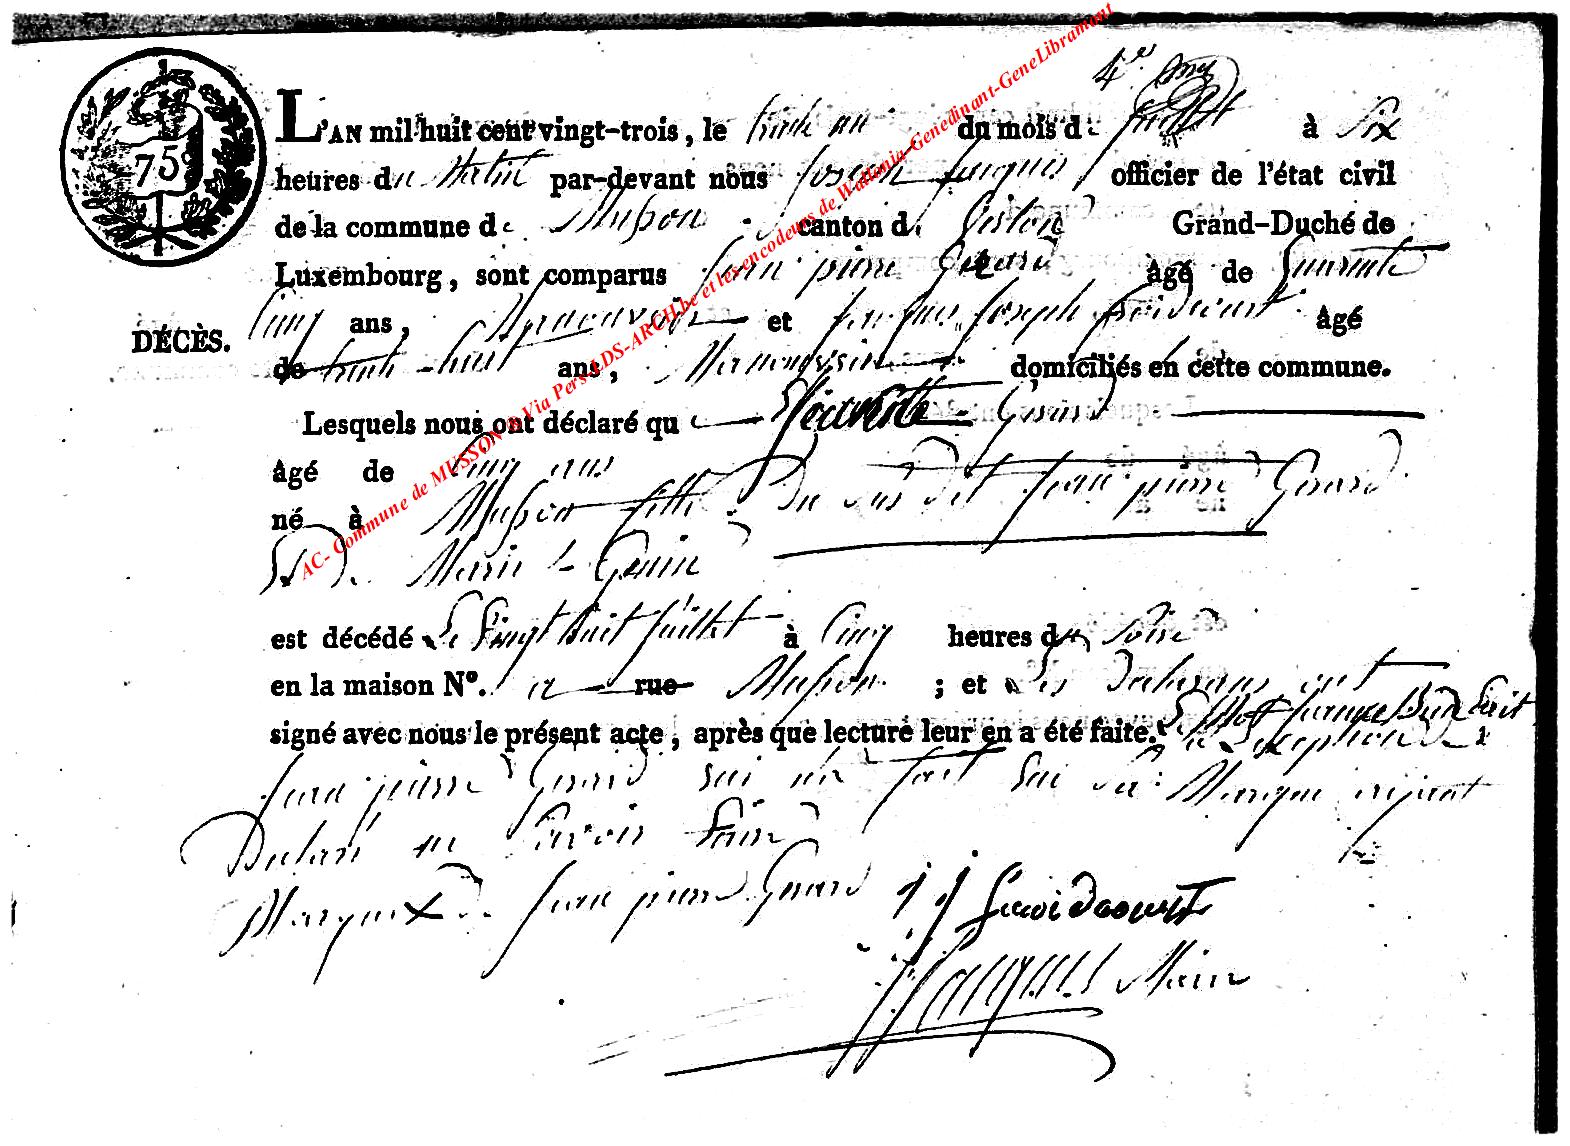 4e
75
L'AN mil huit cent vingt-trois, le trente un du mois de juillet à Six
heures du Matin par-devant nous Joseph Jacques officier de l'état civil
de la commune de Musson canton de Grand-Duché de
Luxembourg, sont comparus Jean pierre Gerard âgé de Quarente
Cinq ans, et Jacques Joseph âgé
DÉCÈS.
de trente huit ans, domiciliés en cette commune.
Lesquels nous ont déclaré que Gerard
âgé de Cinq ans
né à Musson fille Du Sus dit Jean pierre Gerard
Et De Marie
est décédé Le Vingt huit Juillet à Cinq heures du Soire
en la maison N°. a rue Musson ; et Les Declarans ont
signé avec nous le présent acte, après que lecture leur en a été faite. a L'exception de
Jean pierre Gerard qui n'a fait que Sa Marque aijant
Declaré ne Savoir Faire
Marque X De Jean pierre Gerard J J
J Jacques Maire
AC- Commune de MUSSON © Via Pers ADS-ARCH.be et les encodeurs de Wallonia-Genedinant-GeneLibramont